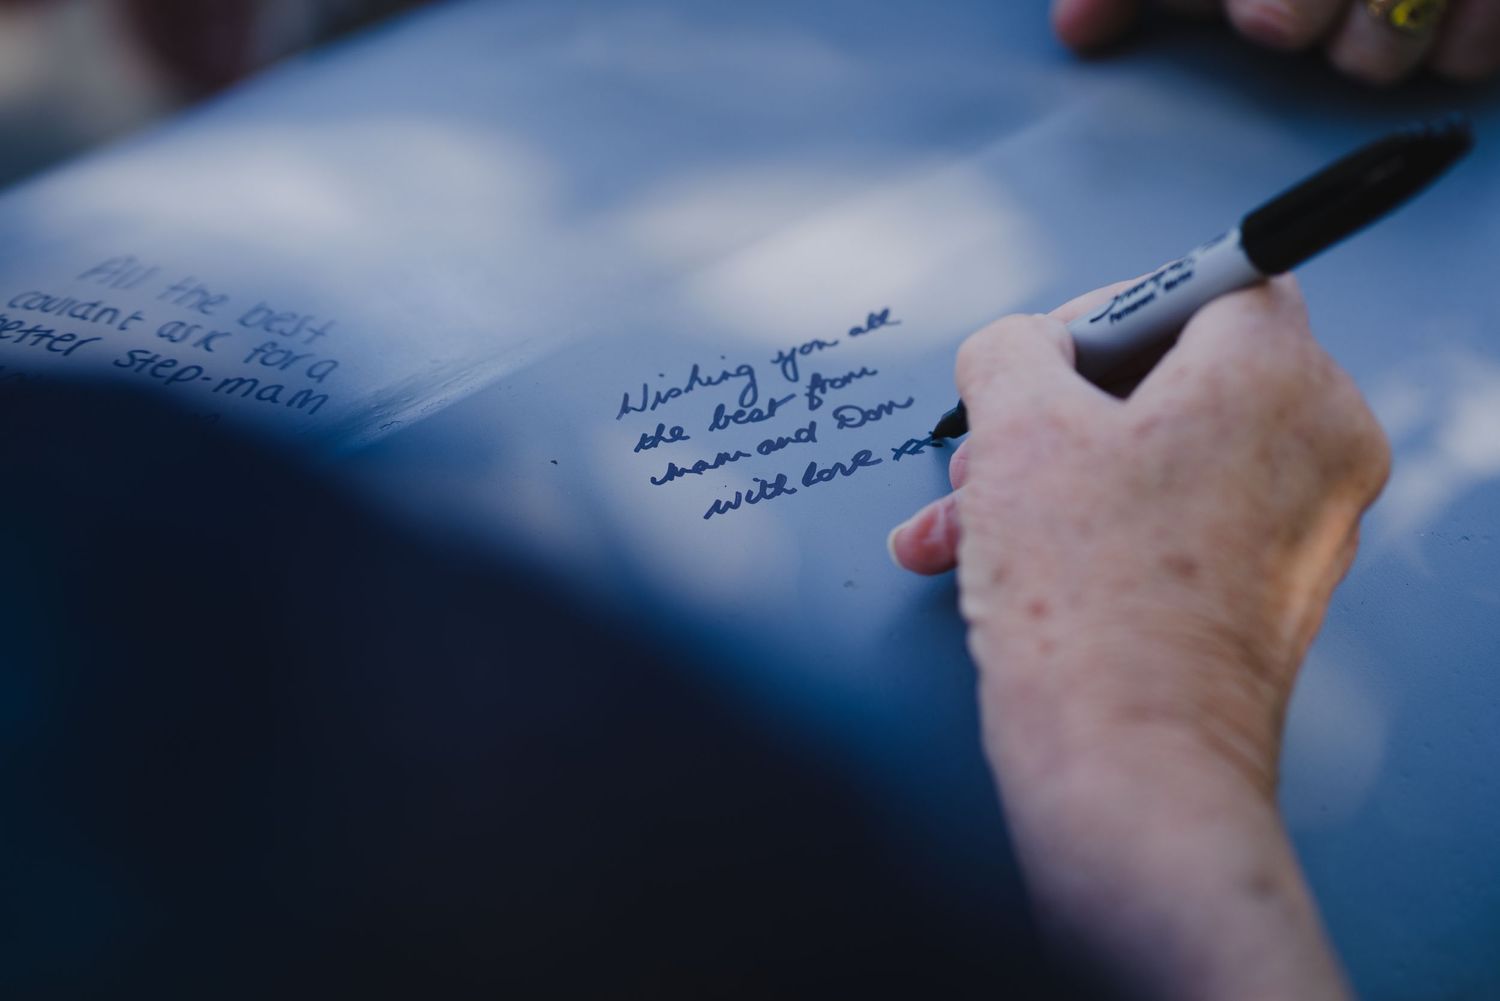 All the best
couldnt ask for a
better step-mam
Wishing you all
the best from
mam and Don
with love xx
Sharpie
Permanent Marker